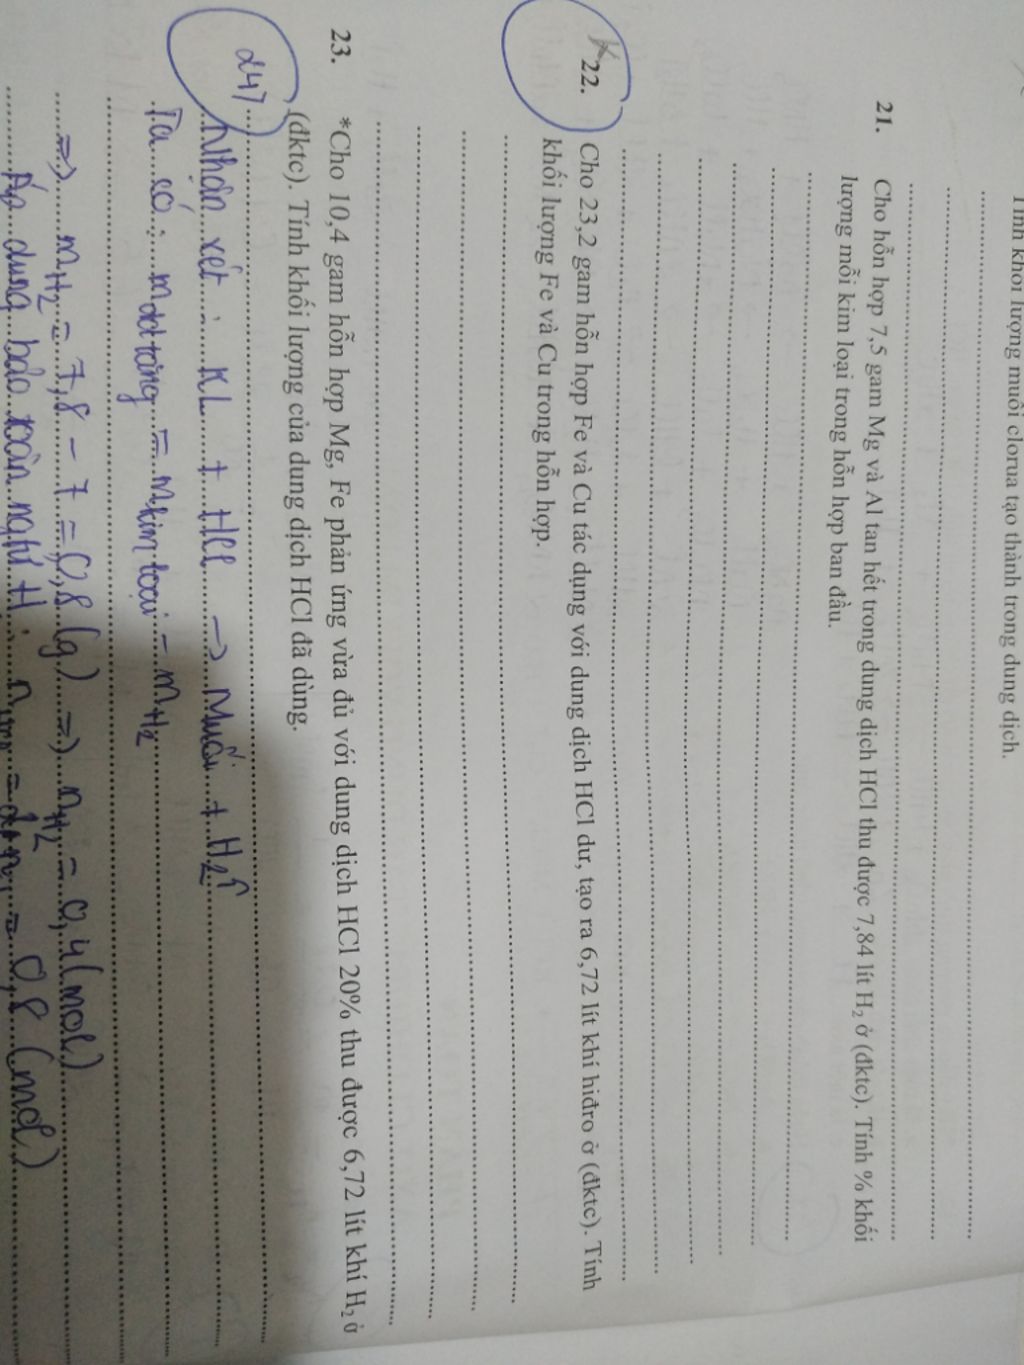 Tính khối lượng muối clorua tạo thành trong dung dịch.
21. Cho hỗn hợp 7,5 gam Mg và Al tan hết trong dung dịch HCl thu được 7,84 lít H₂ ở (đktc). Tính % khối
lượng mỗi kim loại trong hỗn hợp ban đầu.
22. Cho 23,2 gam hỗn hợp Fe và Cu tác dụng với dung dịch HCl dư, tạo ra 6,72 lít khí hiđro ở (đktc). Tính
khối lượng Fe và Cu trong hỗn hợp.
23. *Cho 10,4 gam hỗn hợp Mg, Fe phản ứng vừa đủ với dung dịch HCl 20% thu được 6,72 lít khí H₂ ở
(đktc). Tính khối lượng của dung dịch HCl đã dùng.
247
Nhận xét : KL + HCl → Muối + H₂↑
Ta có : m dd tăng = m kim loại - mH₂
=> mH₂ = 7,8 - 7 = 0,8 (g) => nH₂ = 0,4 (mol)
Áp dụng bảo toàn ngtố H : = 0,8 (mol)